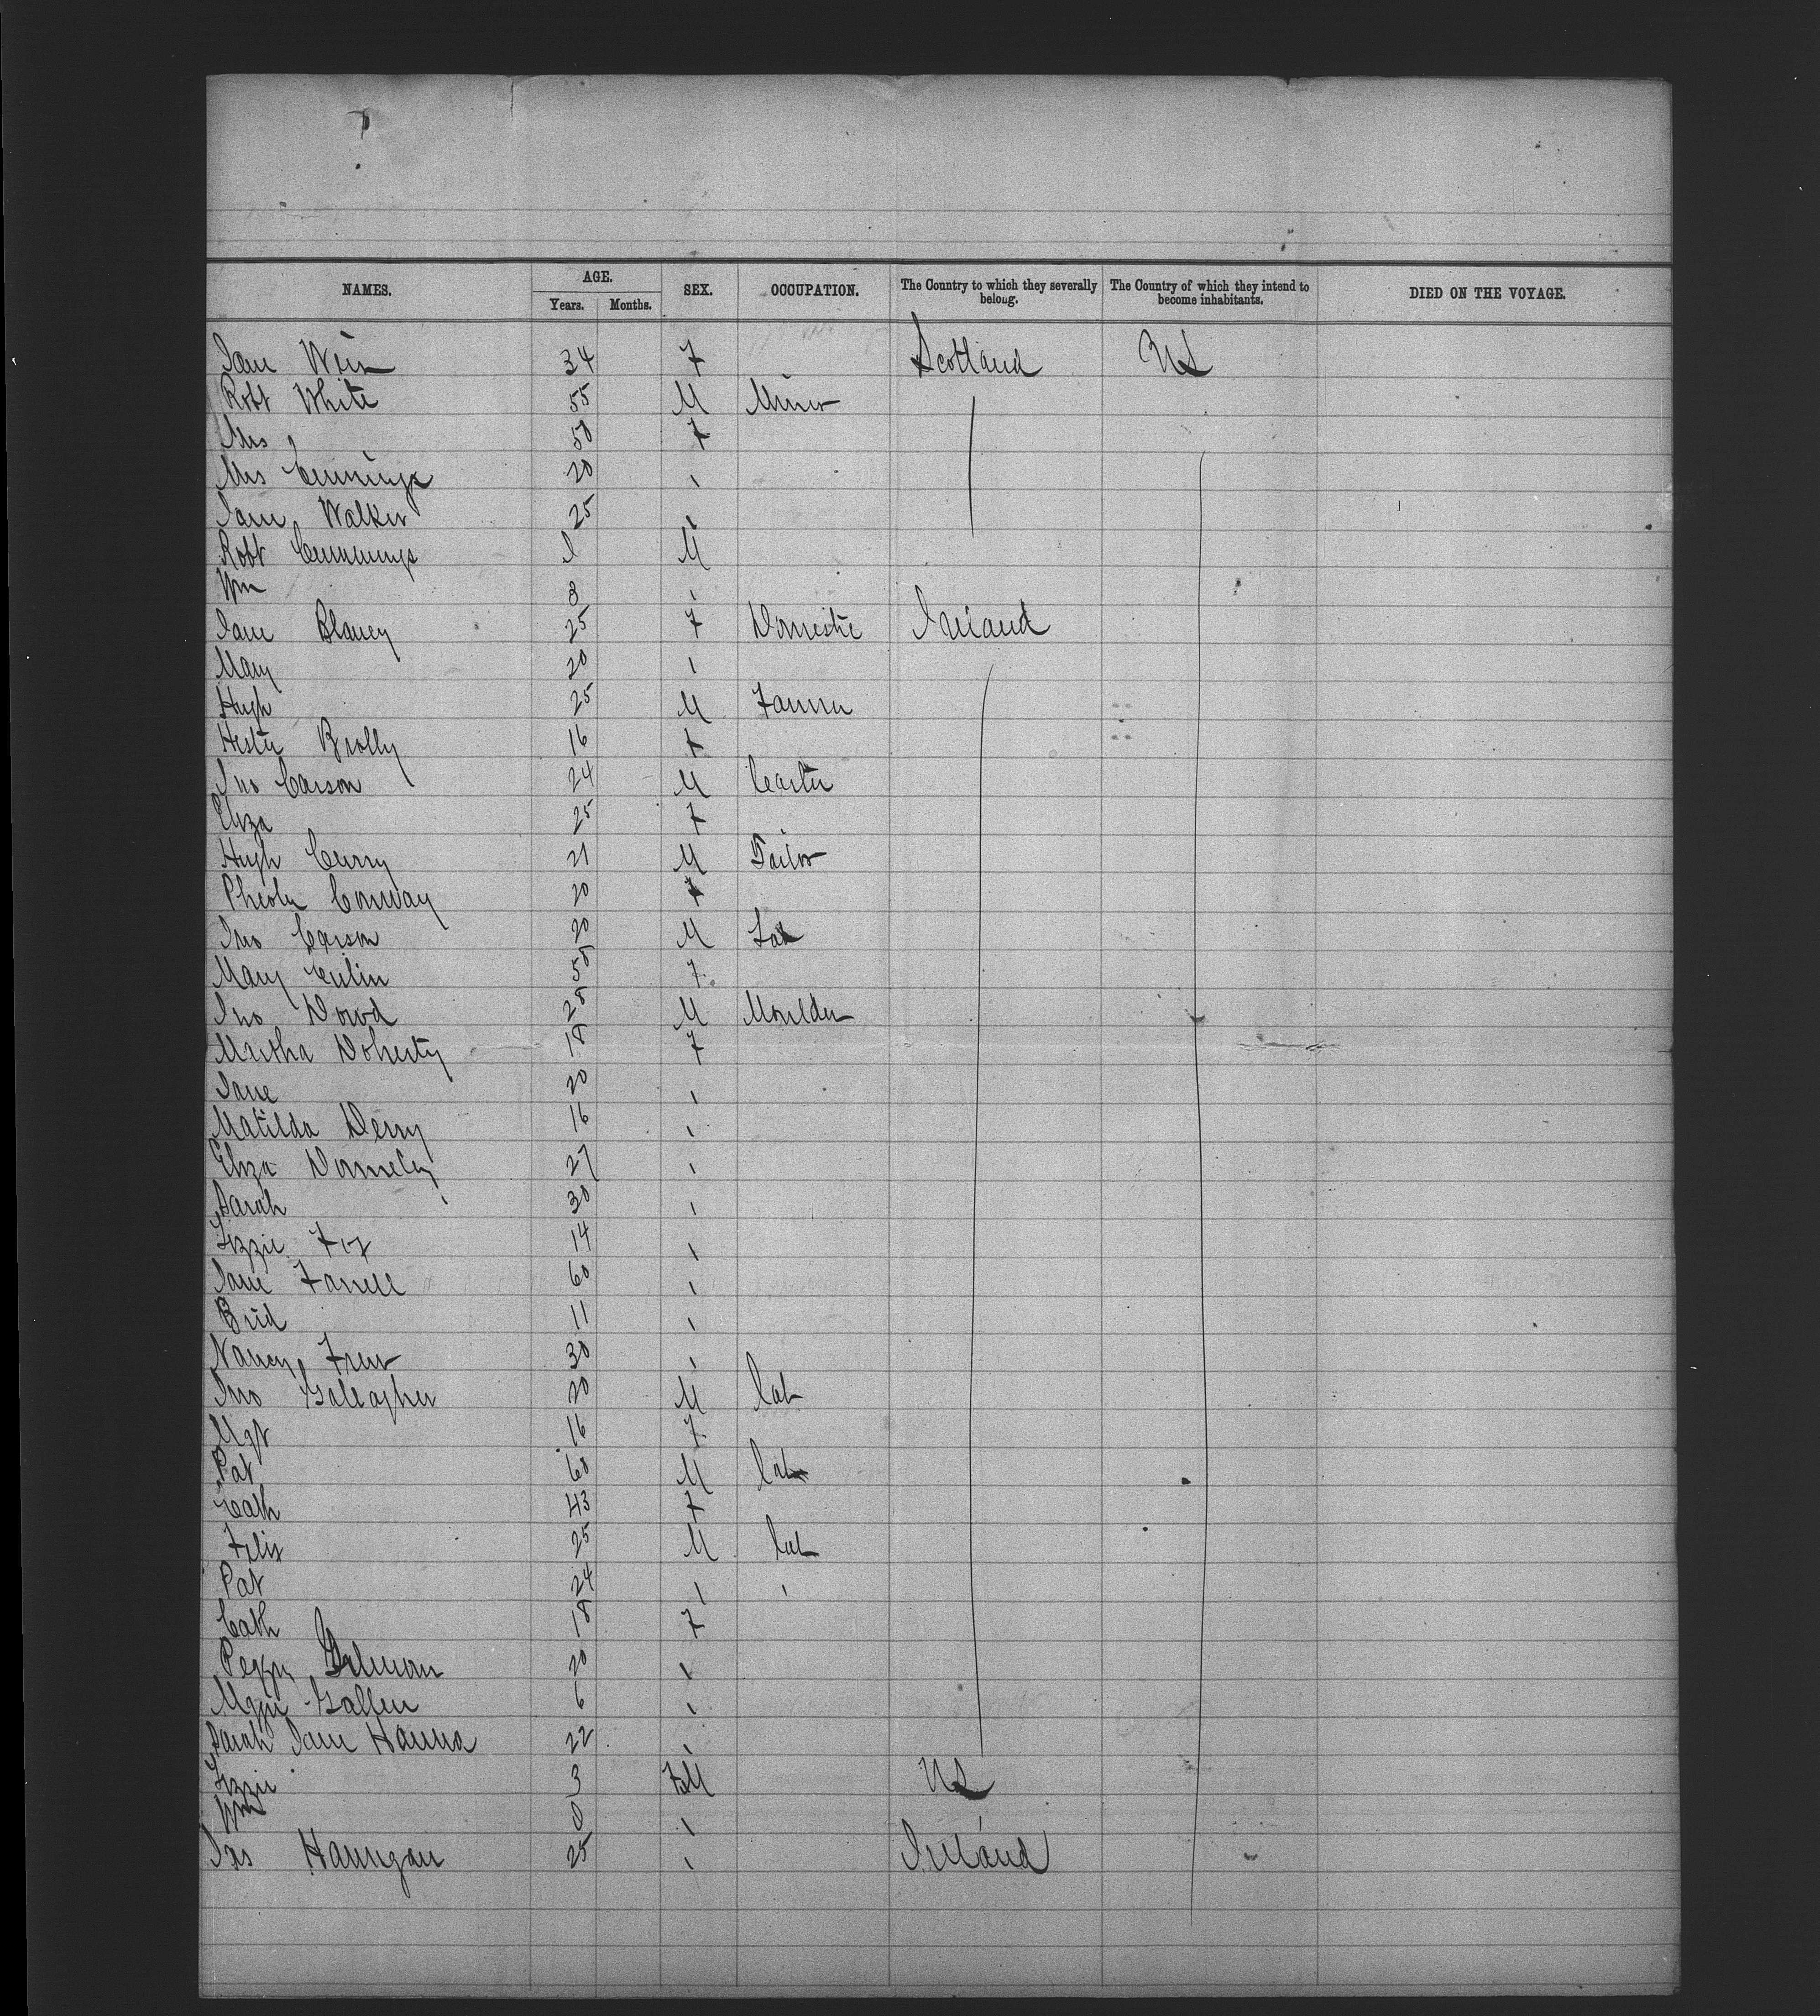 NAMES. AGE. Years. Months. SEX. OCCUPATION. The Country to which they severally belong. The Country of which they intend to become inhabitants. DIED ON THE VOYAGE.
Jane Weir 34 F Scotland US
Robt White 55 M Miner
Mrs " 50 F
Mrs Cummings 20 "
Jane Walker 25 "
Robt Cummings M
Wm 8 "
Jane Blaney 25 F Domestic Ireland
Mary 20 "
Hugh 25 M Farmer
Hester Brolly 16 F
Jno Carson 24 M Carter
Eliza 25 F
Hugh Curry 21 M Tailor
Conway 20 F
Jno Carson 20 M Lab
Mary 55 F
Jno Dowd 28 M Moulder
Martha Doherty 18 F
Jane 20 "
Matilda Derry 16 "
Eliza Donnely 27 "
Sarah 30 "
Lizzie Foy 14 "
Jane Farrell 60 "
Brid 11 "
Nancy Frew 30 "
Jno Gallagher 20 M Lab
Mgt 16 F
Pat 60 M Lab
Cath 43 F
Felix 25 M Lab
Pat 24 " "
Cath 18 F
Peggy 20 "
Mggie Gallen 6 "
Sarah Jane Hanna 22 "
Lizzie 3 US
Wm 0 " "
Jas Hannigan 25 " Ireland